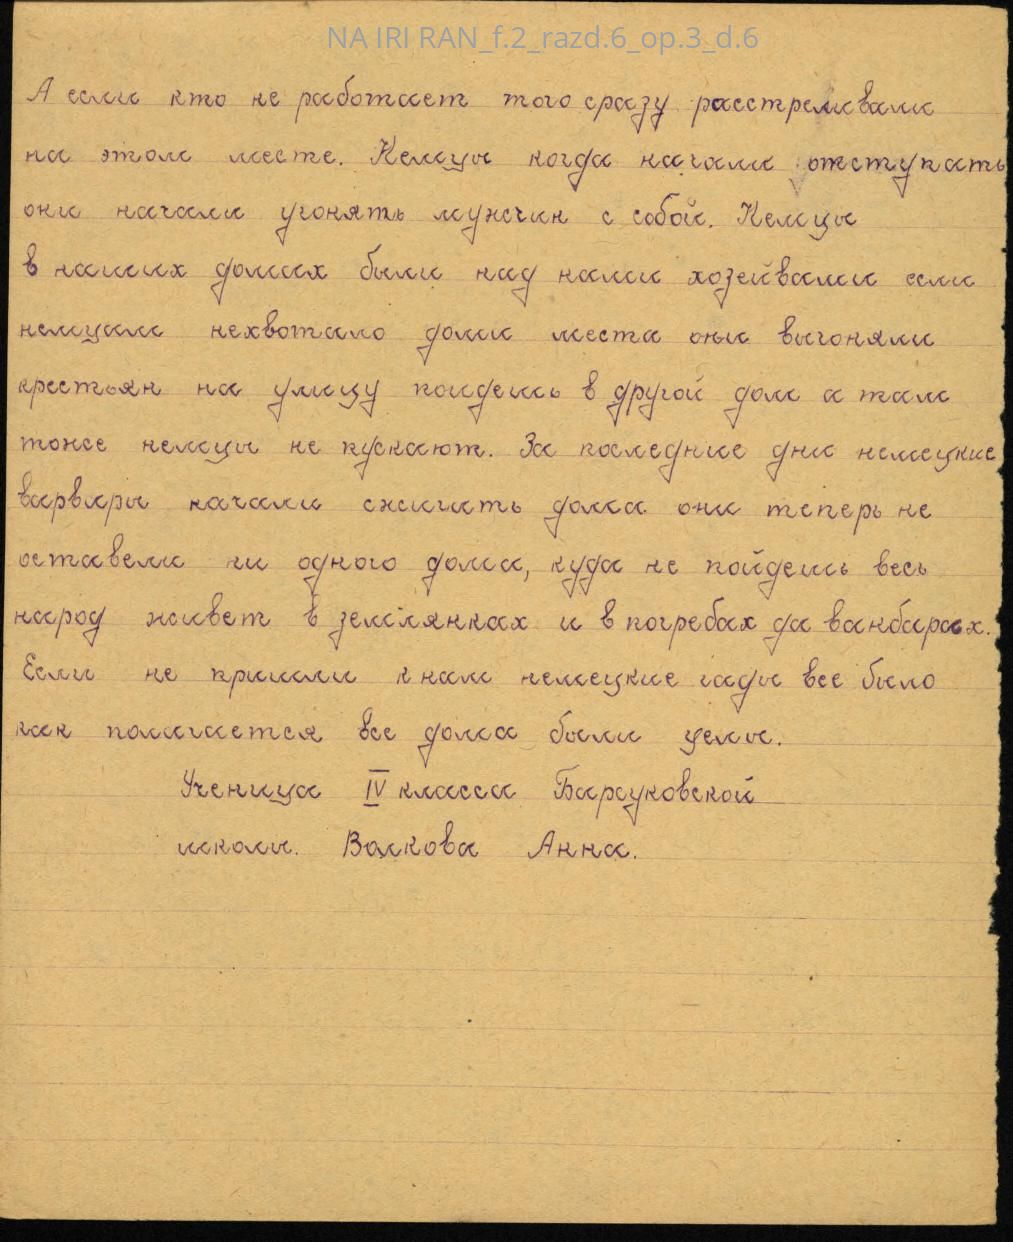 NA IRI RAN_f.2_razd.6_op.3_d.6
А если кто не работает того сразу расстреливали
на этом месте. Немцы когда начали отступать
они начали угонять мужчин с собой. Немцы
в наших домах были над нами хозейвами если
немцам нехвотало дома места они выгоняли
крестьян на улицу поидешь в другой дом а там
тоже немцы не пускают. За последние дни немецкие
варвары начали сжигать дома они теперь не
оставели ни одного дома, куда не пойдешь весь
народ живет в землянках и в погребах да ванбарах.
Если не пришли к нам немецкие гады все было
как полагается все дома были целы.
Ученица IV класса Барсуковской
школы. Волкова Анна.